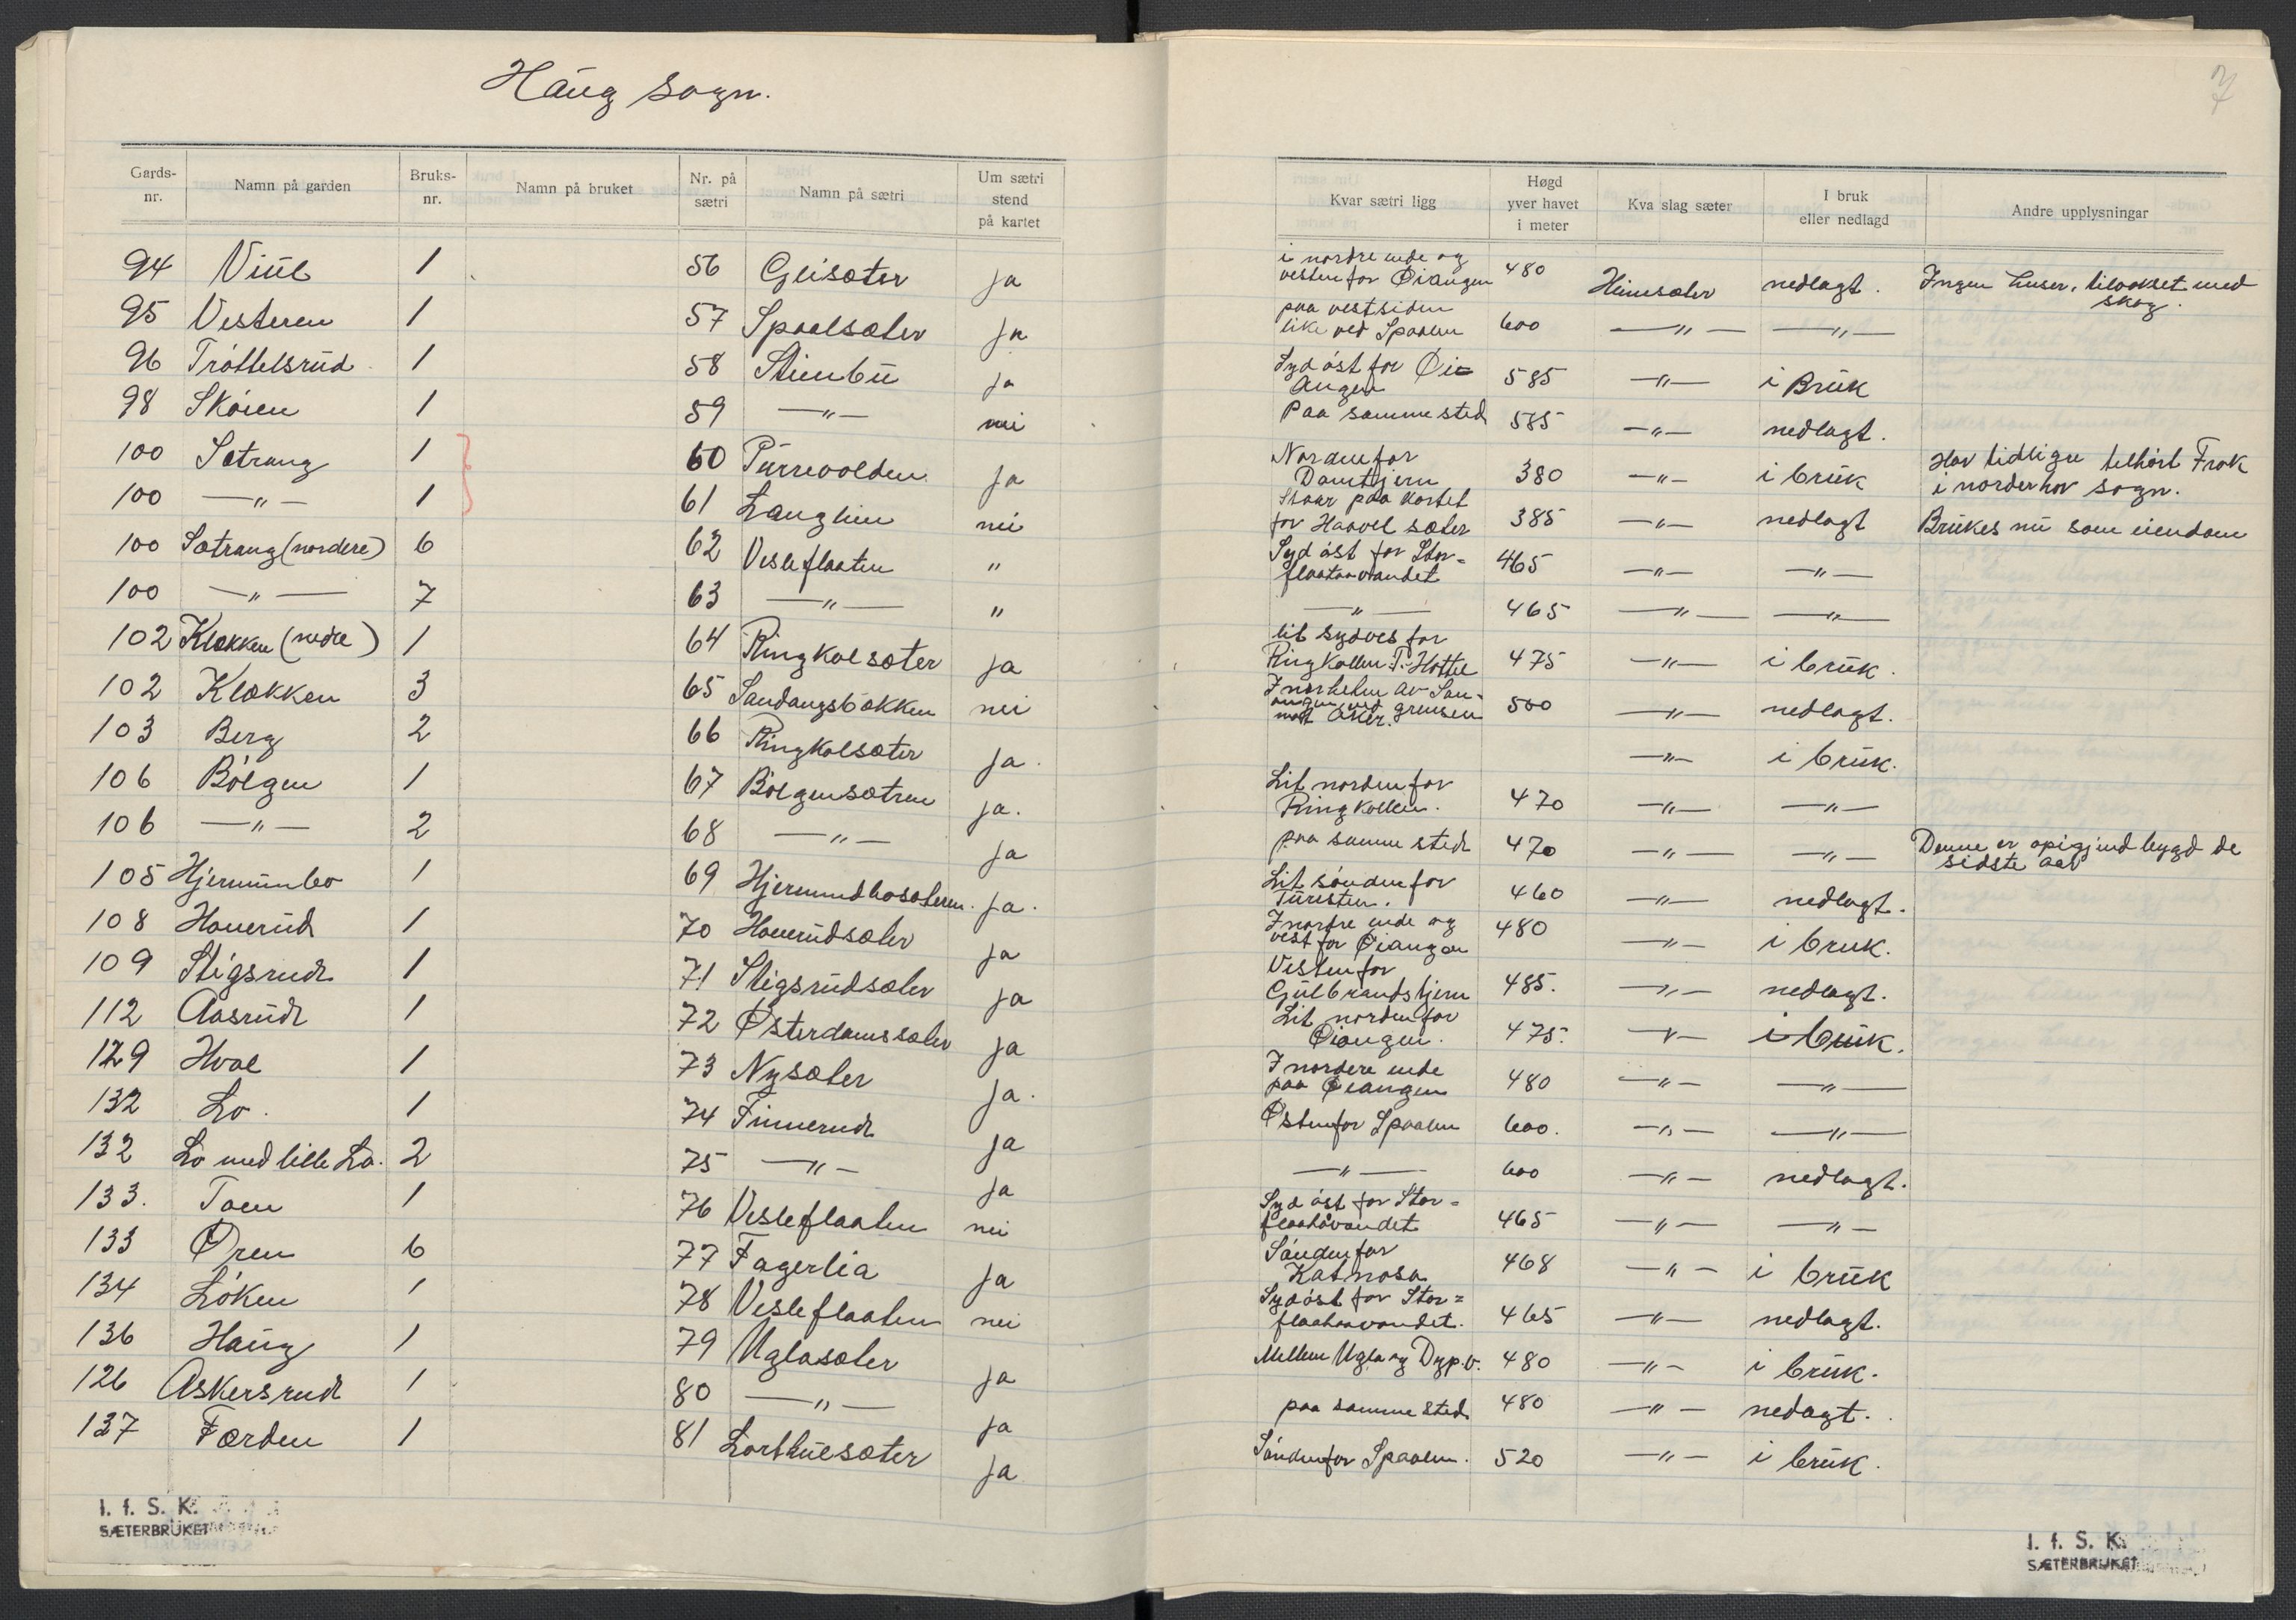 Haug sogn.
7
Gards-nr. Namn på garden Bruks-nr. Namn på bruket Nr. på sætri Namn på sætri Um sætri stend på kartet Kvar sætri ligg Høgd yver havet i meter Kva slag sæter I bruk eller nedlagd Andre upplysningar
94 Viul 1 56 Glisæter ja i nordre ende og vestenfor Øiangen 480 Heimsæter nedlagt. Ingen huser, tilvokset med skog.
95 Vesteren 1 57 Spaalsæter ja paa vestsiden like ved Spaalen 600 —"— —"—
96 Tróttelsrud 1 58 Stienbu ja Syd óst for Øi-angen 585 —"— i Bruk
98 Skóien 1 59 —"— nei Paa samme sted 585 —"— nedlagt.
100 Sætrang 1 60 Purrevolden ja Nordenfor Damtjern 380 —"— i bruk Har tidligere tilhórt Frok i norderhov sogn.
100 —"— 1 61 Langlien nei Staar paa kartet for Haavel sæter 385 —"— nedlagt Brukes nu som eiendom
100 Sætrang (nordere) 6 62 Vesleflaaten " Syd óst for Stor-flaatavandet 465 —"— —"—
100 —"— 7 63 —"— " —"— 465 —"— —"—
102 Klækken (nedre) 1 64 Ringkolsæter ja lit sydves for Ringkollen T. Hottel 475 —"— i bruk.
102 Klækken 3 65 Sandangsbakken nei av grensen mot Aker. 500 —"— nedlagt.
103 Berg 2 66 Ringkolsæter ja. —"— i bruk.
106 Bólgen 1 67 Bólgensætren ja. Lit nordenfor Ringkollen. 470 —"— —"—
106 —"— 2 68 —"— ja paa samme sted 470 —"— —"— Denne er opigjend bygd de sidste aar
105 Hjermunbo 1 69 Hjermundbosæteren. ja. Lit sóndenfor Turisten. 460 —"— nedlagt.
108 Hauerud 1 70 Hauerudsæter ja I nordre ende og vest for Øiangen 480 —"— i bruk.
109 Stigsrud 1 71 Stigsrudsæter ja Vestenfor Gulbrandstjern 485. —"— nedlagt.
112 Aasrud 1 72 Østerdamssæter ja Lit nordenfor Øiangen. 475. —"— i bruk.
129 Hval 1 73 Nysæter ja. I nordere ende paa Øiangen 480 —"— —"—
132 Lo. 1 74 Finnerud ja Østenfor Spaalen 600. —"— —"—
132 Lo med lille Lo. 2 75 —"— ja —"— 600 —"— nedlagt.
133. Toen 1 76 Vesleflaaten nei Syd óst for Stor-flaatavandet 465 —"— —"—
133 Øren 6 77 Fagerlia ja Sóndenfor Katnosa 468 —"— i bruk
134 Lóken 1 78 Vesleflaaten nei Sydóst for Stor-flaataavandet. 465 —"— nedlagt.
136 Haug 1 79 Uglasæter ja Mellem Ugla og Dyp.v. 480 —"— i bruk.
126 Askersrud 1 80 —"— ja paa samme sted 480 —"— nedagt.
137 Færden 1 81 Lorthulsæter ja Sóndenfor Spaalen. 520 —"— i bruk.
I. f. S. K.
SÆTERBRUKET
I. f. S. K.
SÆTERBRUKET